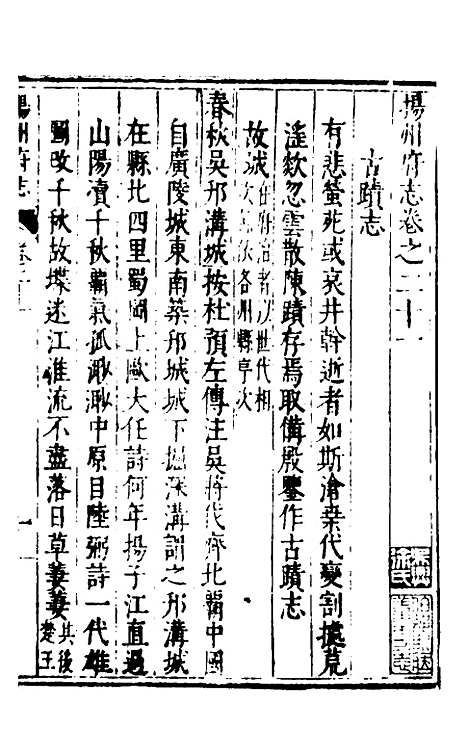 揚州府志卷之二十一
古蹟志
有悲螢死或哀井幹逝者如斯滄桑代變割據荒
滛歘忽雲散陳蹟存焉取備殿鑒作古蹟志
故城在府治者以世代相次 各州縣亨次
春秋吳邗溝城按杜預左傳注吳將伐齊北霸中國
自廣陵城東南築邗城城下掘深溝謂之邗溝城
在縣北四里蜀岡上歐大任詩何年揚子江直過
山陽瀆千秋霸氣孤渺渺中原目陸弼詩一代雄
圖改千秋故堞迷江淮流不盡落日草萋萋其後楚王
揚州府志
卷二十一
一